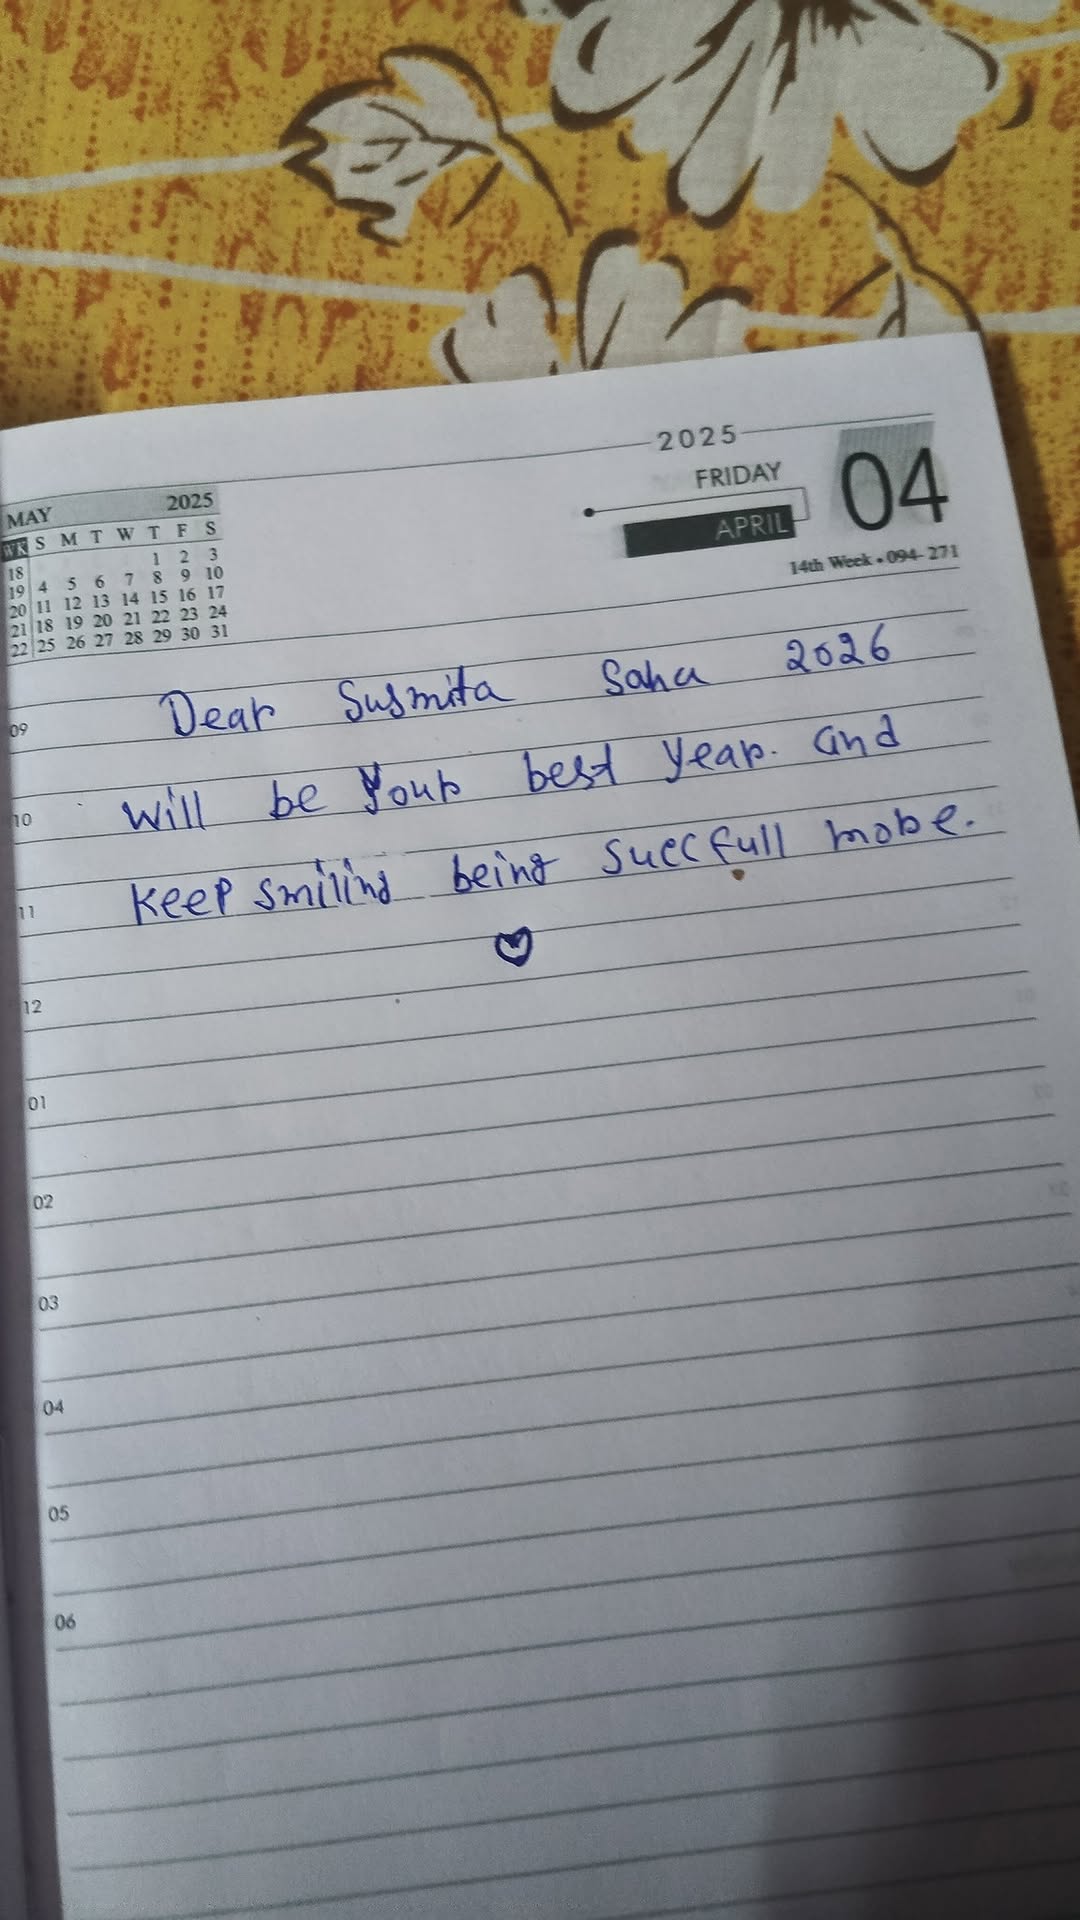 2025
FRIDAY
APRIL
04
14th Week • 094-271
MAY 2025
WK S M T W T F S
18 1 2 3
19 4 5 6 7 8 9 10
20 11 12 13 14 15 16 17
21 18 19 20 21 22 23 24
22 25 26 27 28 29 30 31
09 Dear Susmita Saha 2026
10 will be your best year. and
11 keep smiling being succfull more.
12
01
02
03
04
05
06